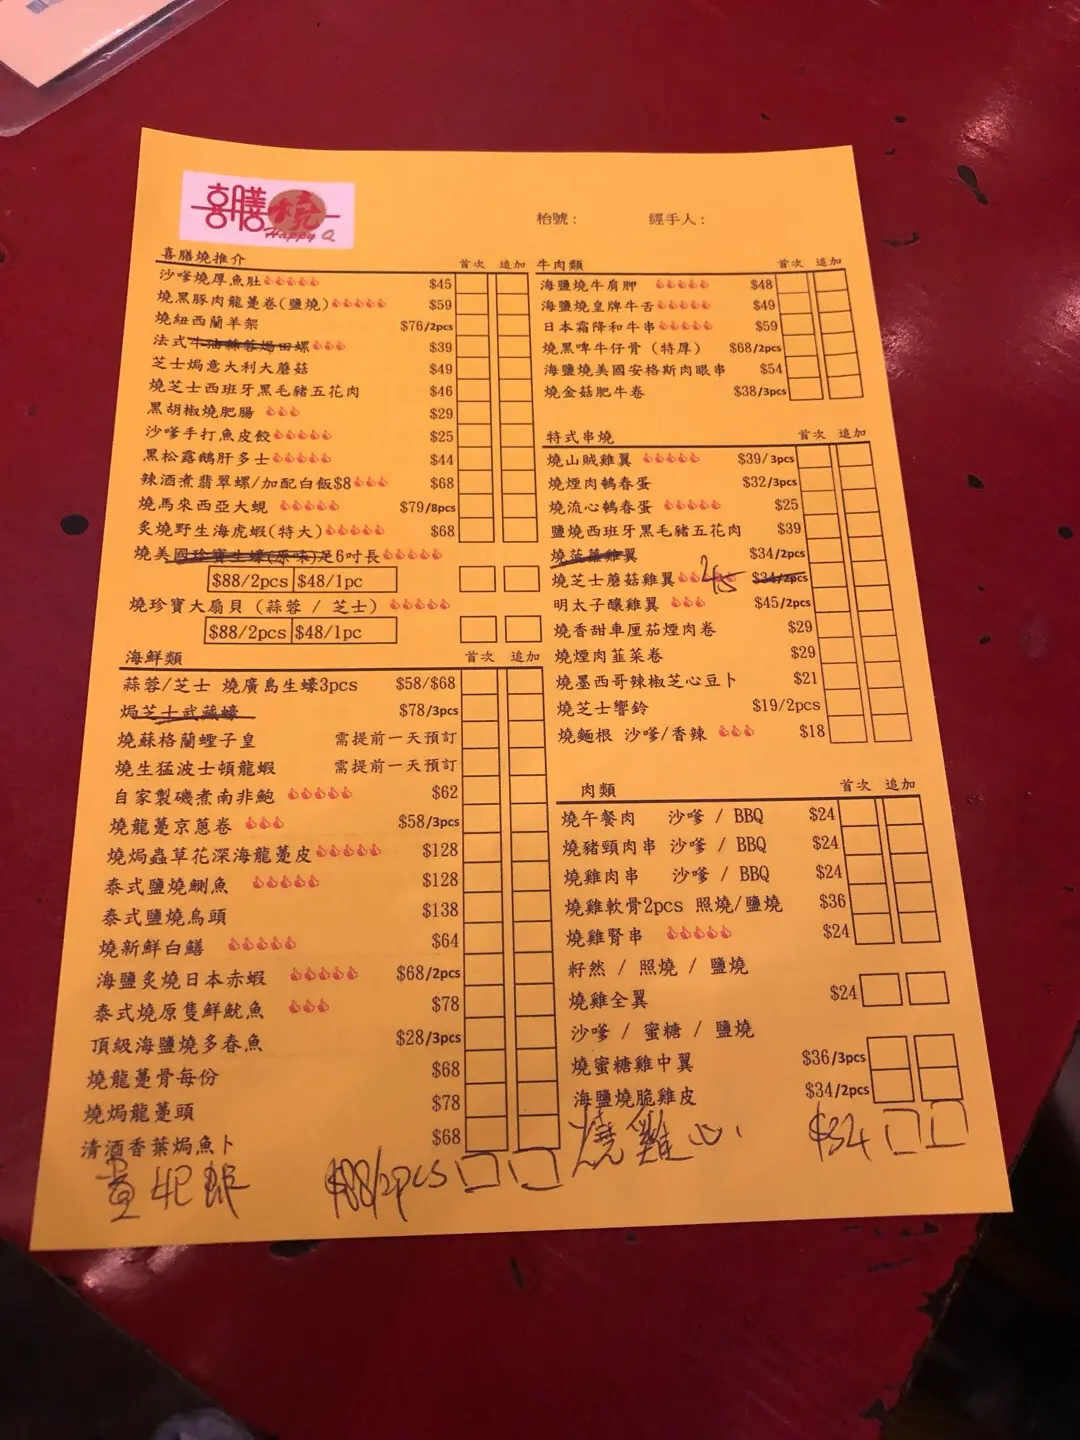 喜膳燒
Happy Q
枱號：　經手人：
喜膳燒推介　首次　追加
沙嗲燒厚魚肚 $45
燒黑豚肉龍躉卷(鹽燒) $59
燒紐西蘭羊架 $76/2pcs
法式牛油蒜蓉焗田螺 $39
芝士焗意大利大蘑菇 $49
燒芝士西班牙黑毛豬五花肉 $46
黑胡椒燒肥腸 $29
沙嗲手打魚皮餃 $25
黑松露鵝肝多士 $44
辣酒煮翡翠螺/加配白飯$8 $68
燒馬來西亞大蜆 $79/8pcs
炙燒野生海虎蝦(特大) $68
燒美國珍寶生蠔(原味)足6吋長
$88/2pcs $48/1pc
燒珍寶大扇貝 (蒜蓉 / 芝士)
$88/2pcs $48/1pc
海鮮類　首次　追加
蒜蓉/芝士 燒廣島生蠔3pcs $58/$68
焗芝士武藏蠔 $78/3pcs
燒蘇格蘭蟶子皇 需提前一天預訂
燒生猛波士頓龍蝦 需提前一天預訂
自家製磯煮南非鮑 $62
燒龍躉京蔥卷 $58/3pcs
燒焗蟲草花深海龍躉皮 $128
泰式鹽燒鯏魚 $128
泰式鹽燒烏頭 $138
燒新鮮白鱔 $64
海鹽炙燒日本赤蝦 $68/2pcs
泰式燒原隻鮮魷魚 $78
頂級海鹽燒多春魚 $28/3pcs
燒龍躉骨每份 $68
燒焗龍躉頭 $78
清酒香葉焗魚卜 $68
$88/2pcs
牛肉類　首次　追加
海鹽燒牛肩胛 $48
海鹽燒皇牌牛舌 $49
日本霜降和牛串 $59
燒黑啤牛仔骨 (特厚) $68/2pcs
海鹽燒美國安格斯肉眼串 $54
燒金菇肥牛卷 $38/3pcs
特式串燒　首次　追加
燒山賊雞翼 $39/3pcs
燒煙肉鵪春蛋 $32/3pcs
燒流心鵪春蛋 $25
鹽燒西班牙黑毛豬五花肉 $39
燒菠蘿雞翼 $34/2pcs
燒芝士蘑菇雞翼 $34/2pcs
明太子釀雞翼 $45/2pcs
燒香甜車厘茄煙肉卷 $29
燒煙肉韮菜卷 $29
燒墨西哥辣椒芝心豆卜 $21
燒芝士響鈴 $19/2pcs
燒麵根 沙嗲/香辣 $18
肉類　首次　追加
燒午餐肉 沙嗲 / BBQ $24
燒豬頸肉串 沙嗲 / BBQ $24
燒雞肉串 沙嗲 / BBQ $24
燒雞軟骨2pcs 照燒/鹽燒 $36
燒雞腎串 $24
籽然 / 照燒 / 鹽燒
燒雞全翼 $24
沙嗲 / 蜜糖 / 鹽燒
燒蜜糖雞中翼 $36/3pcs
海鹽燒脆雞皮 $34/2pcs
燒雞心 $34